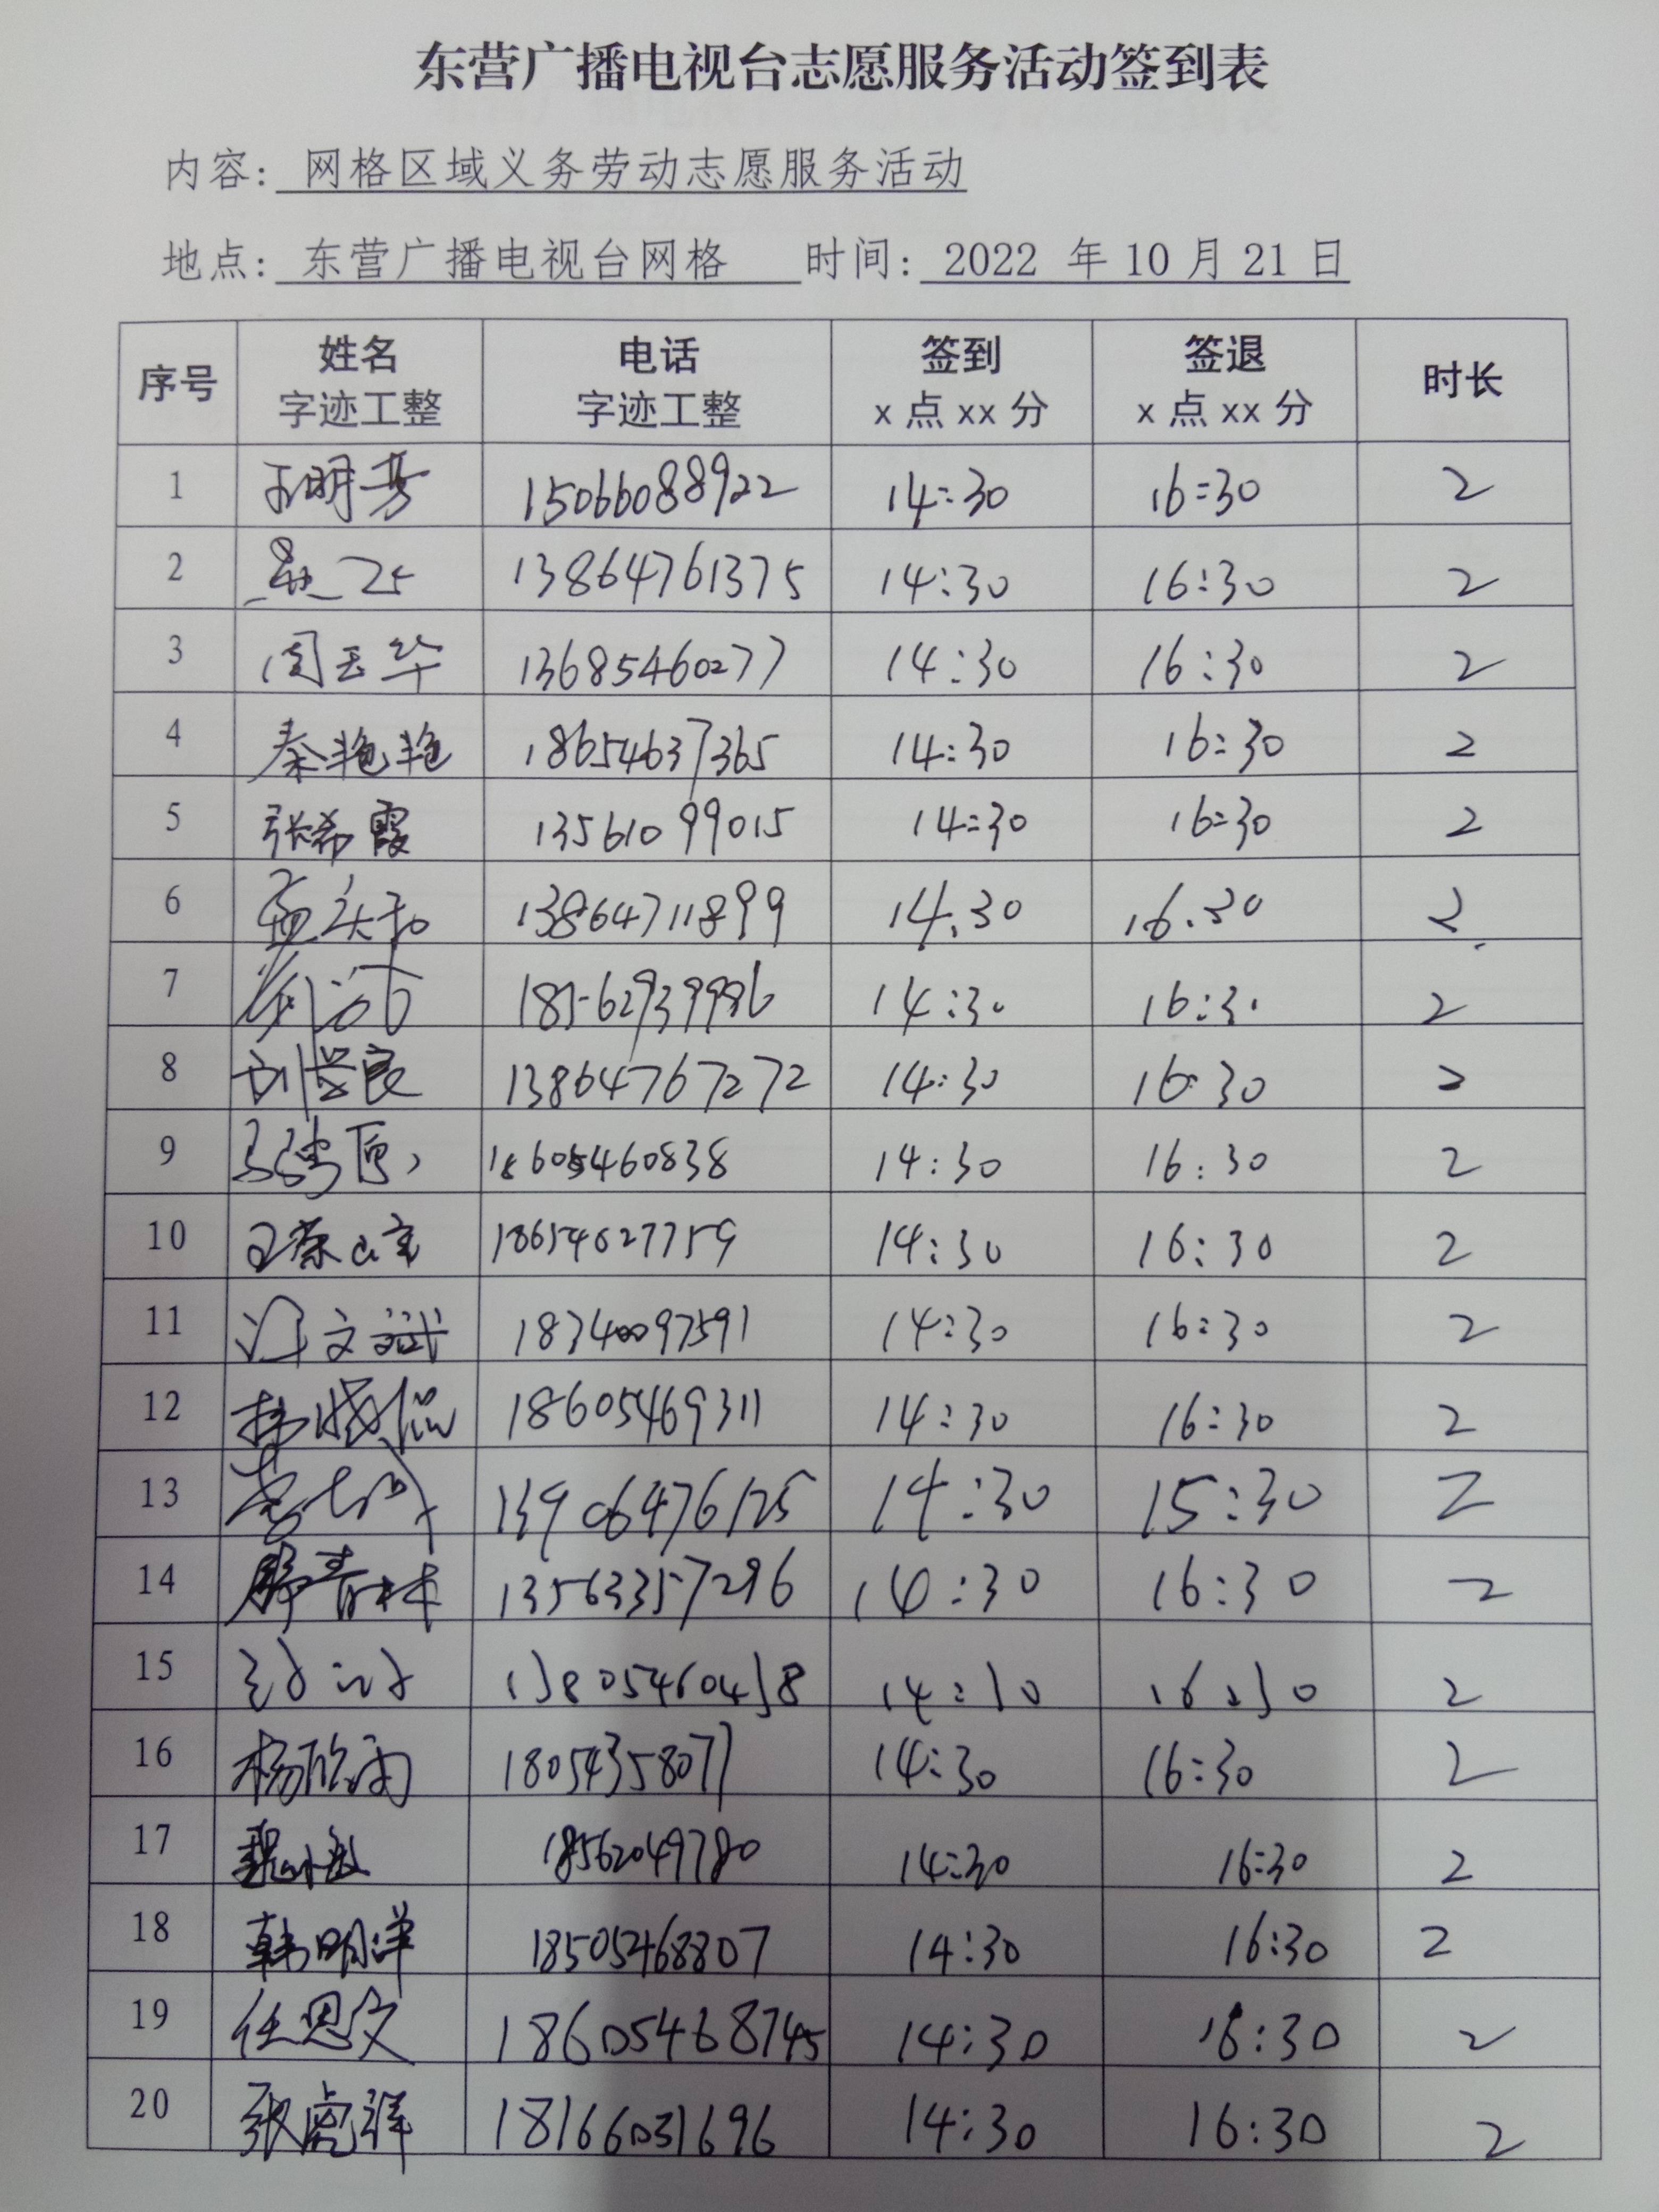 东营广播电视台志愿服务活动签到表
内容: 网格区域义务劳动志愿服务活动
地点: 东营广播电视台网格 时间: 2022 年 10 月 21 日
序号 姓名 电话 签到 签退 时长
字迹工整 字迹工整 x 点 xx 分 x 点 xx 分
1 15066088922 14:30 16:30 2
2 13864761375 14:30 16:30 2
3 周玉华 13685460277 14:30 16:30 2
4 秦艳艳 18654637365 14:30 16:30 2
5 张希霞 13561099015 14:30 16:30 2
6 13864711899 14.30 16.30 2
7 14:30 16:30 2
8 刘学良 13864767272 14:30 16:30 2
9 18605460838 14:30 16:30 2
10 18654627759 14:30 16:30 2
11 文斌 18340097591 14:30 16:30 2
12 18605469311 14:30 16:30 2
13 13906476125 14:30 15:30 2
14 滕青林 13563357296 14:30 16:30 2
15 13805460438 14:30 16:30 2
16 杨欣雨 18054358077 14:30 16:30 2
17 18562049780 14:30 16:30 2
18 韩明洋 18505468807 14:30 16:30 2
19 任思文 18605468745 14:30 16:30 2
20 张虎祥 18166031696 14:30 16:30 2